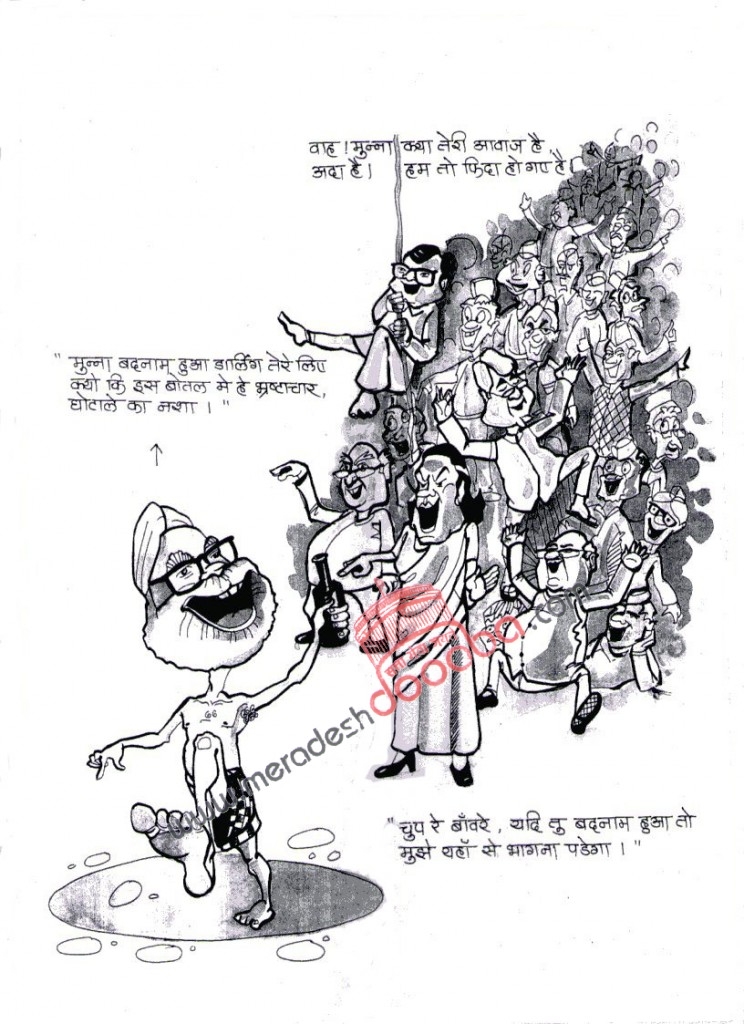 वाह ! मुन्ना क्या तेरी आवाज है
अदा है । हम तो फिदा हो गए है ।
" मुन्ना बदनाम हुआ डार्लिंग तेरे लिए
क्यो कि इस बोतल मे है भ्रष्टाचार,
घोटाले का नशा । "
www.meradeshdoooba.com
" चुप रे बाँवरे , यदि तु बदनाम हुआ तो
मुझे यहाँ से भागना पडेगा । "